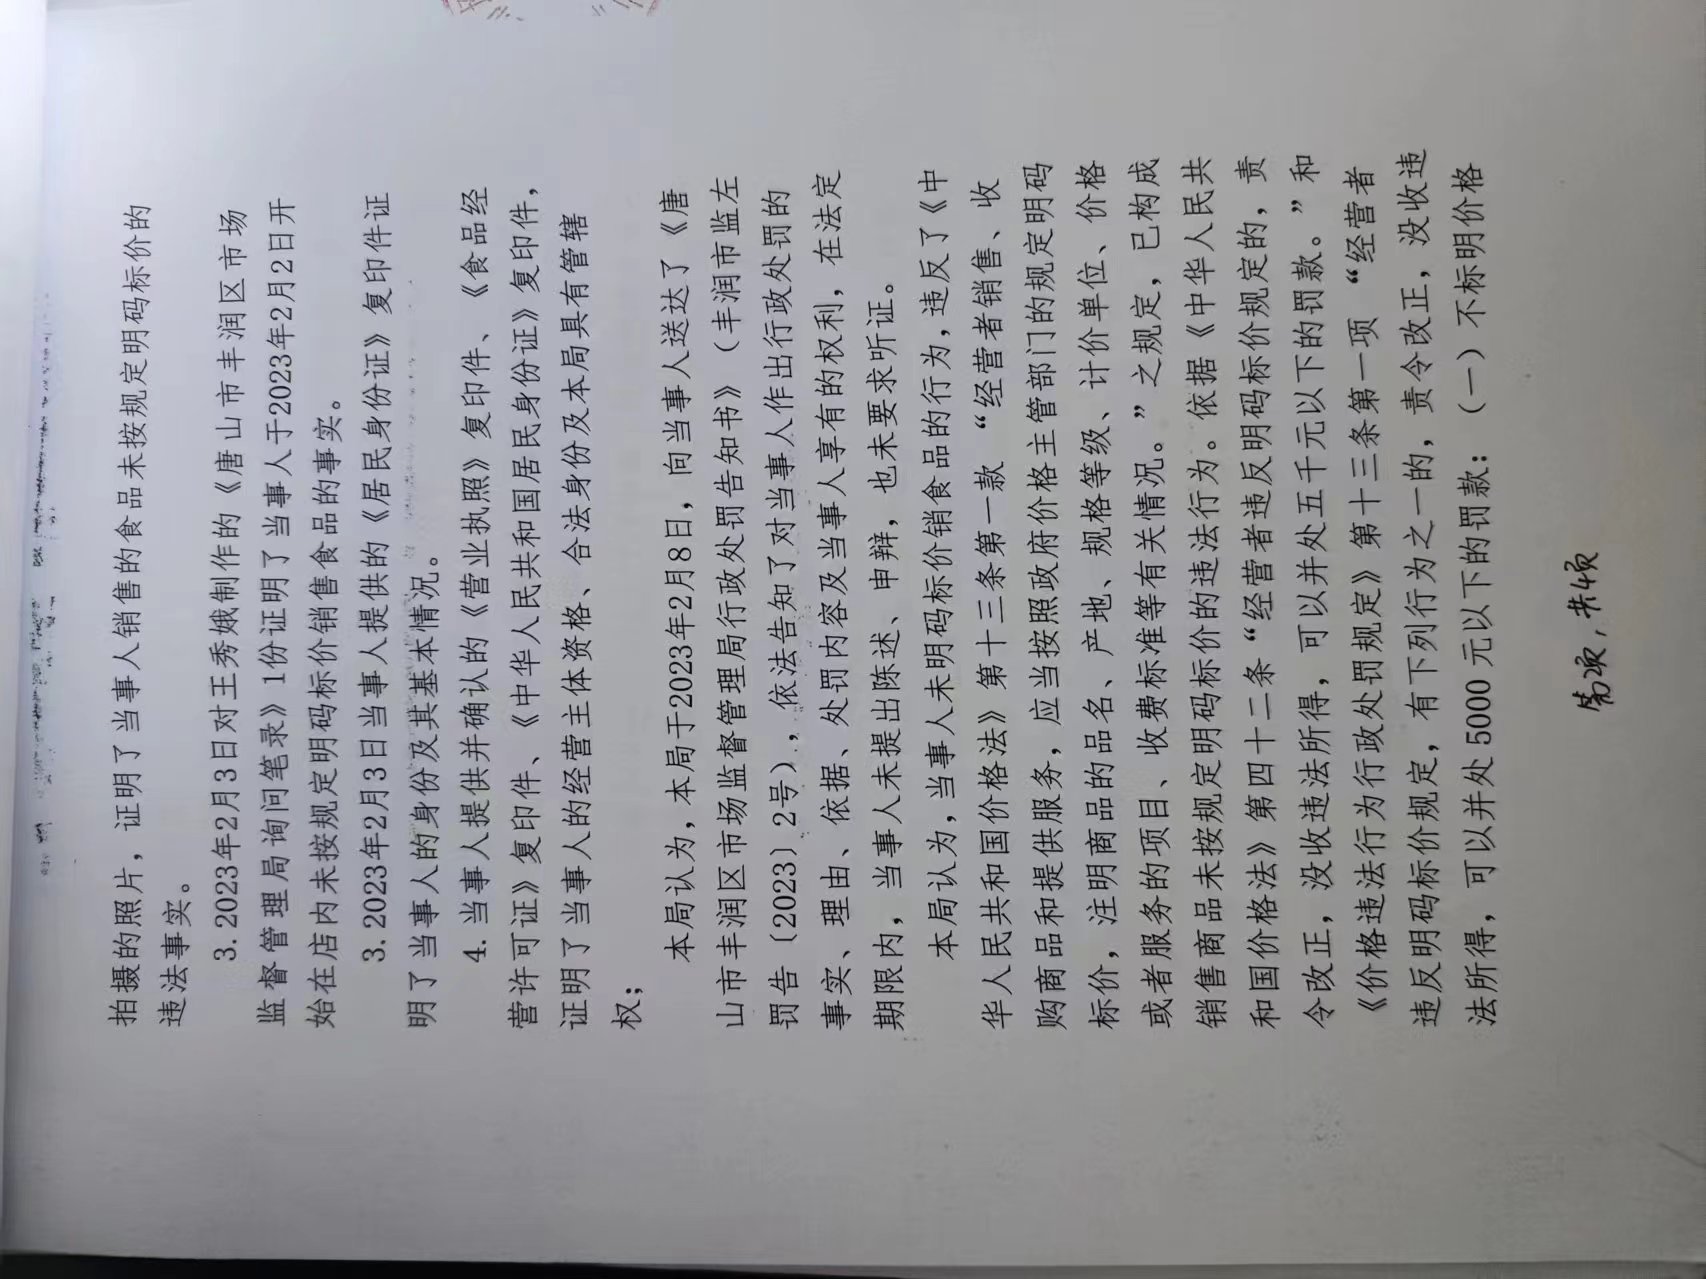 拍摄的照片，证明了当事人销售的食品未按规定明码标价的
违法事实。
3.2023年2月3日对王秀娥制作的《唐山市丰润区市场
监督管理局询问笔录》1份证明了当事人于2023年2月2日开
始在店内未按规定明码标价销售食品的事实。
3.2023年2月3日当事人提供的《居民身份证》复印件证
明了当事人的身份及其基本情况。
4.当事人提供并确认的《营业执照》复印件、《食品经
营许可证》复印件、《中华人民共和国居民身份证》复印件，
证明了当事人的经营主体资格、合法身份及本局具有管辖
权；
本局认为，本局于2023年2月8日，向当事人送达了《唐
山市丰润区市场监督管理局行政处罚告知书》（丰润市监左
罚告〔2023〕2号），依法告知了对当事人作出行政处罚的
事实、理由、依据、处罚内容及当事人享有的权利，在法定
期限内，当事人未提出陈述、申辩，也未要求听证。
本局认为，当事人未明码标价销食品的行为，违反了《中
华人民共和国价格法》第十三条第一款“经营者销售、收
购商品和提供服务，应当按照政府价格主管部门的规定明码
标价，注明商品的品名、产地、规格等级、计价单位、价格
或者服务的项目、收费标准等有关情况。”之规定，已构成
销售商品未按规定明码标价的违法行为。依据《中华人民共
和国价格法》第四十二条“经营者违反明码标价规定的，责
令改正，没收违法所得，可以并处五千元以下的罚款。”和
《价格违法行为行政处罚规定》第十三条第一项“经营者
违反明码标价规定，有下列行为之一的，责令改正，没收违
法所得，可以并处5000元以下的罚款：（一）不标明价格
第2页，共4页